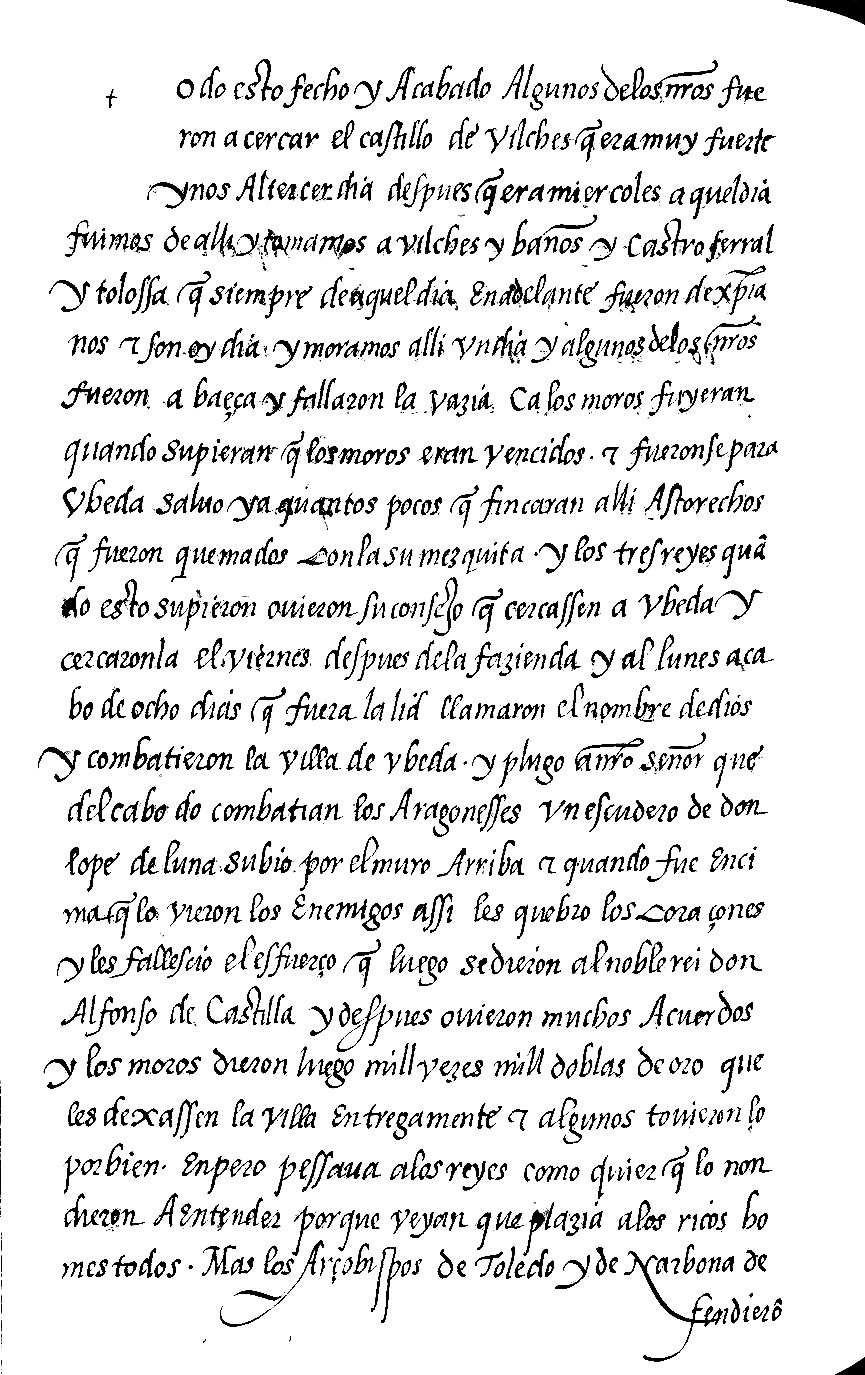 † odo esto fecho y Acabado Algunos delos nr̃os fue
ron a cercar el castillo de Vilches q̃ era muy fuerte
y nos Al tercer dia despues q̃ era miercoles a quel dia
fuimos de alli y tomamos a vilches y ban̄os y Castro ferral
y tolossa q̃ siempre de aquel dia En adelante fueron de xp̃ia
nos ⁊ son oy dia. y moramos alli vn dia y algunos delos nr̃os
fueron a baeça y fallaron la vazia Ca los moros fuyeran
quando supieran q̃ los moros eran vencidos. ⁊ fueronse para
Vbeda saluo ya quantos pocos q̃ fincaran alli Astorechos
q̃ fueron quemados Con la su mezquita. y los tres reyes quã
do esto supieron ouieron su consejo q̃ cercassen a Vbeda y
cercaronla el viernes despues dela fazienda y al lunes aca
bo de ocho dias q̃ fuera la lid llamaron el nombre de dios
y combatieron la villa de vbeda. y plugo a nr̃o sen̄or que
del cabo do combatian los Aragonesses vn escudero de don
lope de luna subio por el muro Arriba ⁊ quando fue Enci
ma q̃ lo vieron los Enemigos assi les quebro los Coraçones
y les fallescio el esfuerço q̃ luego se dieron al noble rei don
Alfonso de Castilla y despues ouieron muchos Acuerdos
y los moros dieron luego mill vezes mill doblas de oro que
les dexassen la villa Entregamente ⁊ algunos touieron lo
por bien. Enpero pessaua a los reyes como quier q̃ lo non
dieron A Entender porque veyan que plazia a los ricos ho
mes todos. Mas los Arçobispos de Toledo y de Narbona de
fendierõ